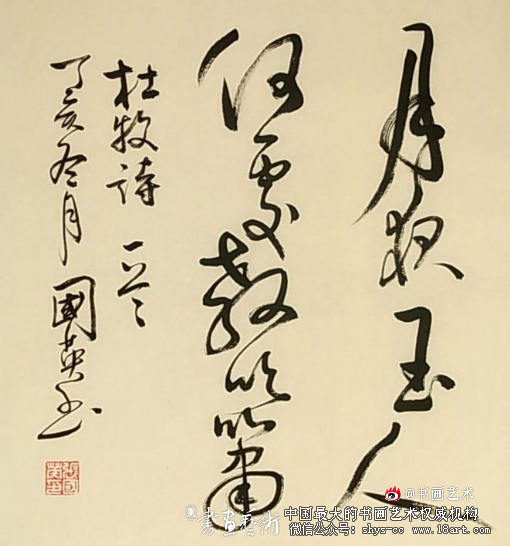 月夜玉人
何處教吹簫
杜牧詩
丁亥冬月 國英书
@书画艺术
書畫藝術
中国最大的书画艺术权威机构
微信公众号：shys-cc www.18art.com